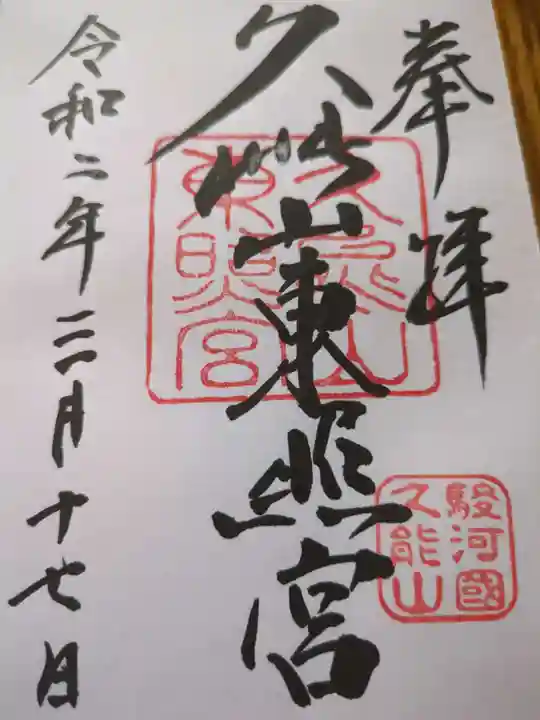 奉拝
久能山東照宮
久能山
東照宮
駿河國
久能山
令和二年三月十七日